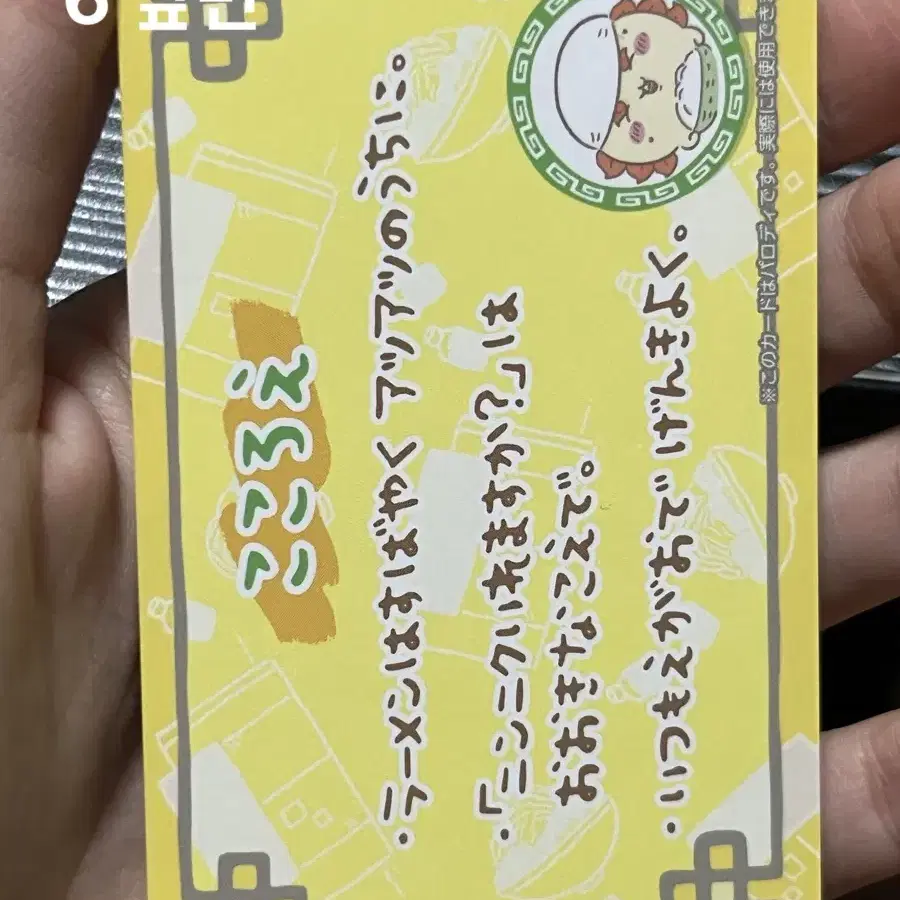 6 일반
こころえ
・ラーメンはすばやく アツアツのうちに。
・「ニンニクいれますか?」は
おおきなこえで。
・いつもえがおで げんきよく。
※このカードはパロディです。実際には使用でき